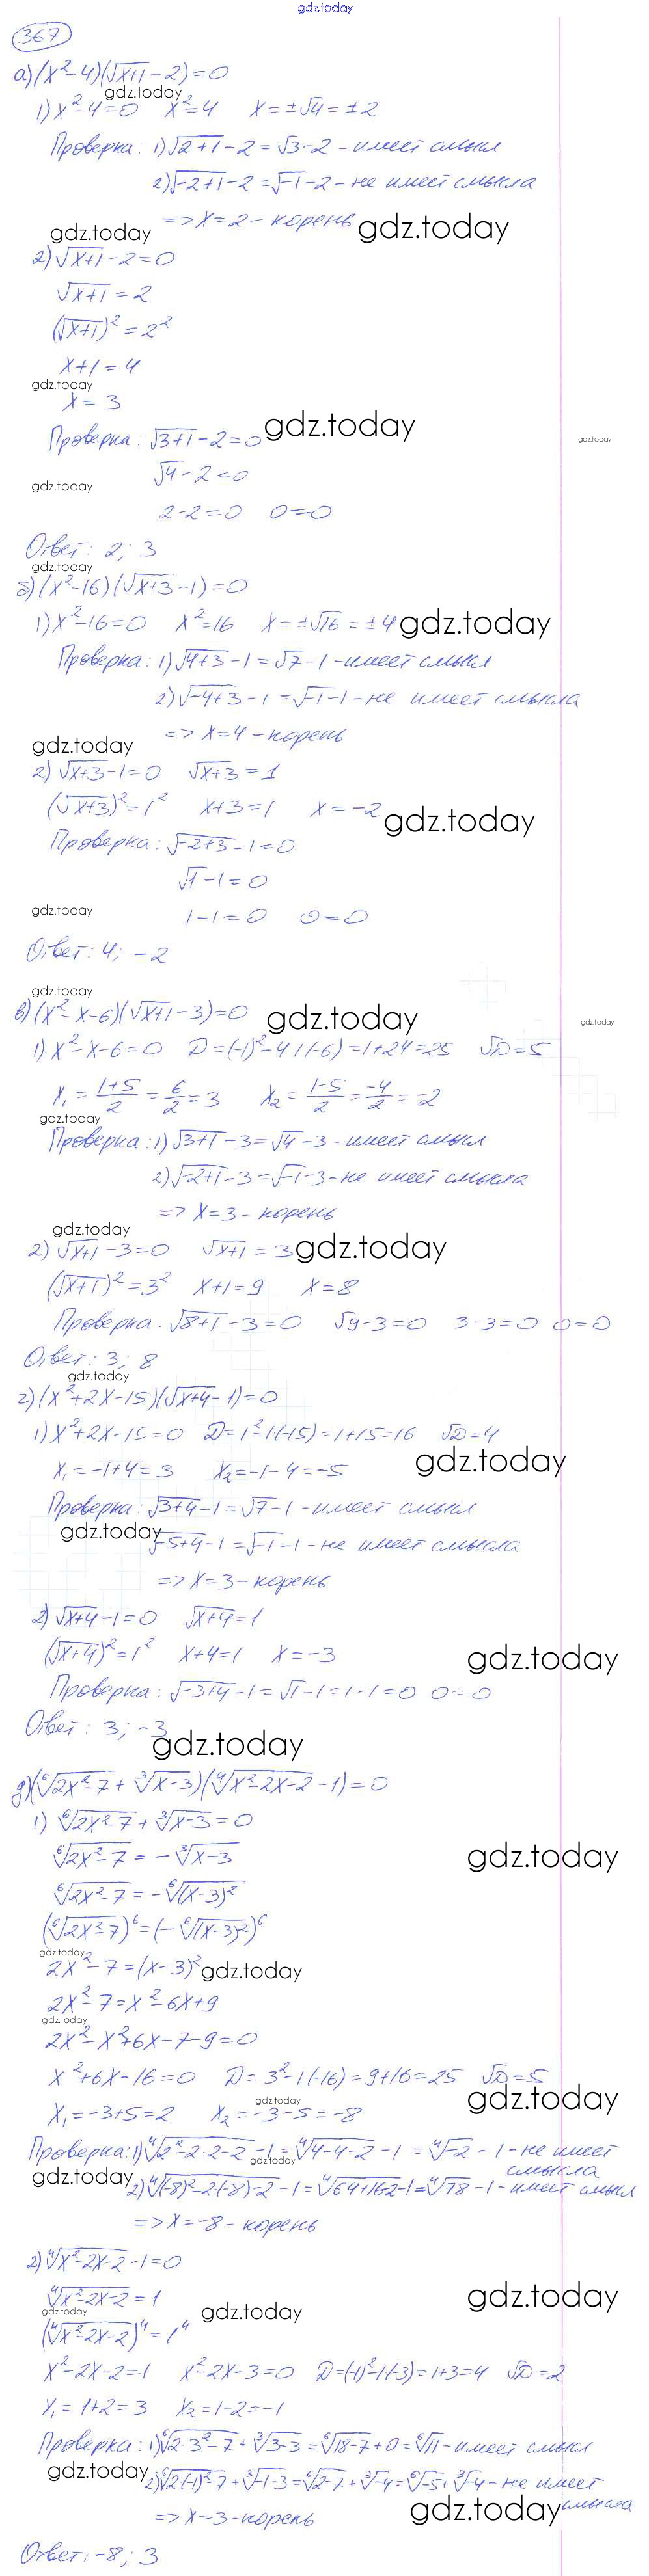 gdz.today
367
а) (x²-4)(√x+1 - 2) = 0
gdz.today
1) x²-4=0 x²=4 x=±√4=±2
Проверка: 1) √2+1 - 2 = √3 - 2 - имеет смысл
2) √-2+1 - 2 = √-1 - 2 - не имеет смысла
=> x=2 - корень
gdz.today gdz.today
2) √x+1 - 2 = 0
√x+1 = 2
(√x+1)² = 2²
x+1 = 4
gdz.today
x = 3
Проверка: √3+1 - 2 = 0
gdz.today
gdz.today
√4 - 2 = 0
gdz.today
2-2=0 0=0
Ответ: 2; 3
gdz.today
б) (x²-16)(√x+3 - 1) = 0
1) x²-16=0 x²=16 x=±√16=±4
gdz.today
Проверка: 1) √4+3 - 1 = √7 - 1 - имеет смысл
2) √-4+3 - 1 = √-1 - 1 - не имеет смысла
=> x=4 - корень
gdz.today
2) √x+3 - 1 = 0 √x+3 = 1
(√x+3)² = 1² x+3=1 x=-2
gdz.today
Проверка: √-2+3 - 1 = 0
√1 - 1 = 0
gdz.today
1-1=0 0=0
Ответ: 4; -2
gdz.today
в) (x²-x-6)(√x+1 - 3) = 0
gdz.today
gdz.today
1) x²-x-6=0 D=(-1)²-4·1·(-6)=1+24=25 √D=5
x₁ = 1+5/2 = 6/2 = 3 x₂ = 1-5/2 = -4/2 = -2
gdz.today
Проверка: 1) √3+1 - 3 = √4 - 3 - имеет смысл
2) √-2+1 - 3 = √-1 - 3 - не имеет смысла
=> x=3 - корень
gdz.today
2) √x+1 - 3 = 0 √x+1 = 3
gdz.today
(√x+1)² = 3² x+1=9 x=8
Проверка. √8+1 - 3 = 0 √9-3=0 3-3=0 0=0
Ответ: 3; 8
gdz.today
г) (x²+2x-15)(√x+4 - 1) = 0
1) x²+2x-15=0 D=1²-1(-15)=1+15=16 √D=4
gdz.today
x₁=-1+4=3 x₂=-1-4=-5
Проверка: √3+4 - 1 = √7 - 1 - имеет смысл
gdz.today
√-5+4 - 1 = √-1 - 1 - не имеет смысла
=> x=3 - корень
2) √x+4 - 1 = 0 √x+4 = 1
(√x+4)² = 1² x+4=1 x=-3
gdz.today
Проверка: √-3+4 - 1 = √1 - 1 = 1-1=0 0=0
Ответ: 3; -3
gdz.today
д) (⁶√2x²-7 + ³√x-3)(⁴√x²-2x-2 - 1) = 0
1) ⁶√2x²-7 + ³√x-3 = 0
⁶√2x²-7 = -³√x-3
gdz.today
⁶√2x²-7 = -⁶√(x-3)²
(⁶√2x²-7)⁶ = (-⁶√(x-3)²)⁶
gdz.today
2x²-7=(x-3)²
gdz.today
2x²-7=x²-6x+9
gdz.today
2x²-x²+6x-7-9=0
x²+6x-16=0 D=3²-1(-16)=9+16=25 √D=5
gdz.today
x₁=-3+5=2 x₂=-3-5=-8
gdz.today
Проверка: 1) ⁴√2²-2·2-2 - 1 = ⁴√4-4-2 - 1 = ⁴√-2 - 1 - не имеет
смысла
gdz.today
gdz.today
2) ⁴√(-8)²-2(-8)-2 - 1 = ⁴√64+16-2 - 1 = ⁴√78 - 1 - имеет смысл
=> x=-8 - корень
2) ⁴√x²-2x-2 - 1 = 0
⁴√x²-2x-2 = 1
gdz.today
gdz.today
gdz.today
(⁴√x²-2x-2)⁴ = 1⁴
x²-2x-2=1 x²-2x-3=0 D=(-1)²-1·(-3)=1+3=4 √D=2
x₁=1+2=3 x₂=1-2=-1
Проверка: 1) ⁶√2·3²-7 + ³√3-3 = ⁶√18-7 + 0 = ⁶√11 - имеет смысл
gdz.today
2) ⁶√2(-1)²-7 + ³√-1-3 = ⁶√2-7 + ³√-4 = ⁶√-5 + ³√-4 - не имеет
смысла
gdz.today
=> x=3 - корень
Ответ: -8; 3